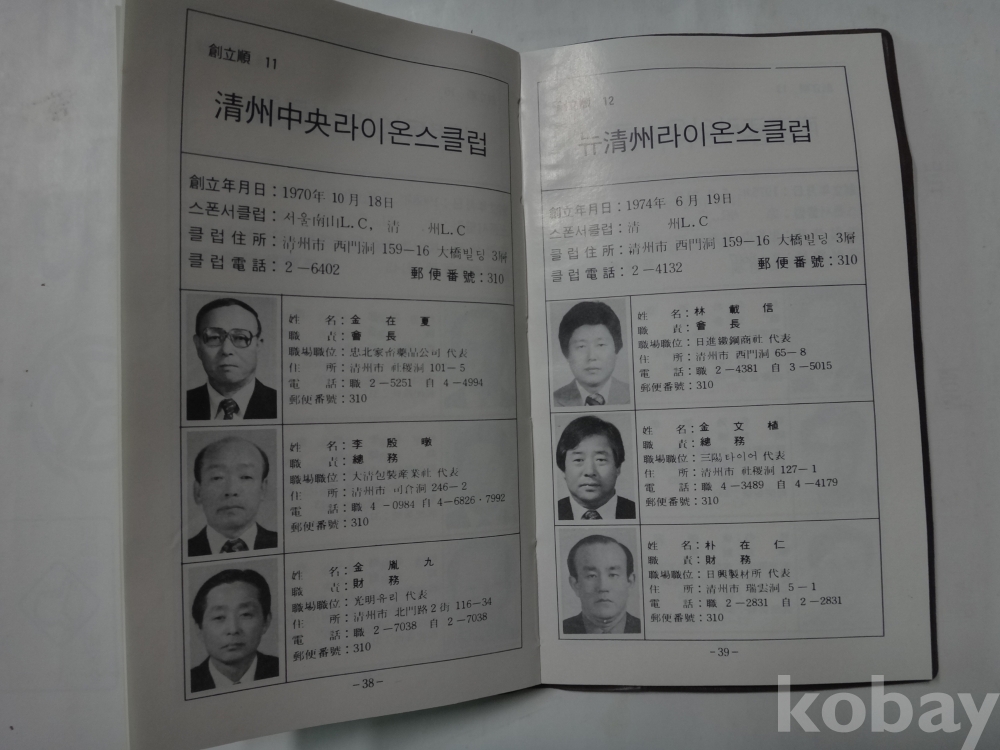 創立順 11
清州中央라이온스클럽
創立年月日:1970年 10月 18日
스폰서클럽:서울南山L.C, 清 州L.C
클럽住所:清州市 西門洞 159-16 大橋빌딩 3層
클럽電話:2-6402 郵便番號:310
姓 名:金在夏
職 責:會長
職場職位:忠北家畜藥品公司 代表
住 所:清州市 社稷洞 101-5
電 話:職 2-5251 自 4-4994
郵便番號:310
姓 名:李殷暾
職 責:總務
職場職位:大清包裝産業社 代表
住 所:清州市 司倉洞 246-2
電 話:職 4-0984 自 4-6826·7992
郵便番號:310
姓 名:金胤九
職 責:財務
職場職位:光明유리 代表
住 所:清州市 北門路2街 116-34
電 話:職 2-7038 自 2-7038
郵便番號:310
-38-
創立順 12
뉴清州라이온스클럽
創立年月日:1974年 6月 19日
스폰서클럽:清 州L.C
클럽住所:清州市 西門洞 159-16 大橋빌딩 3層
클럽電話:2-4132 郵便番號:310
姓 名:林載信
職 責:會長
職場職位:日進鐵鋼商社 代表
住 所:清州市 西門洞 65-8
電 話:職 2-4381 自 3-5015
郵便番號:310
姓 名:金文植
職 責:總務
職場職位:三陽타이어 代表
住 所:清州市 社稷洞 127-1
電 話:職 4-3489 自 4-4179
郵便番號:310
姓 名:朴在仁
職 責:財務
職場職位:日興製材所 代表
住 所:清州市 瑞雲洞 5-1
電 話:職 2-2831 自 2-2831
郵便番號:310
-39-
kobay